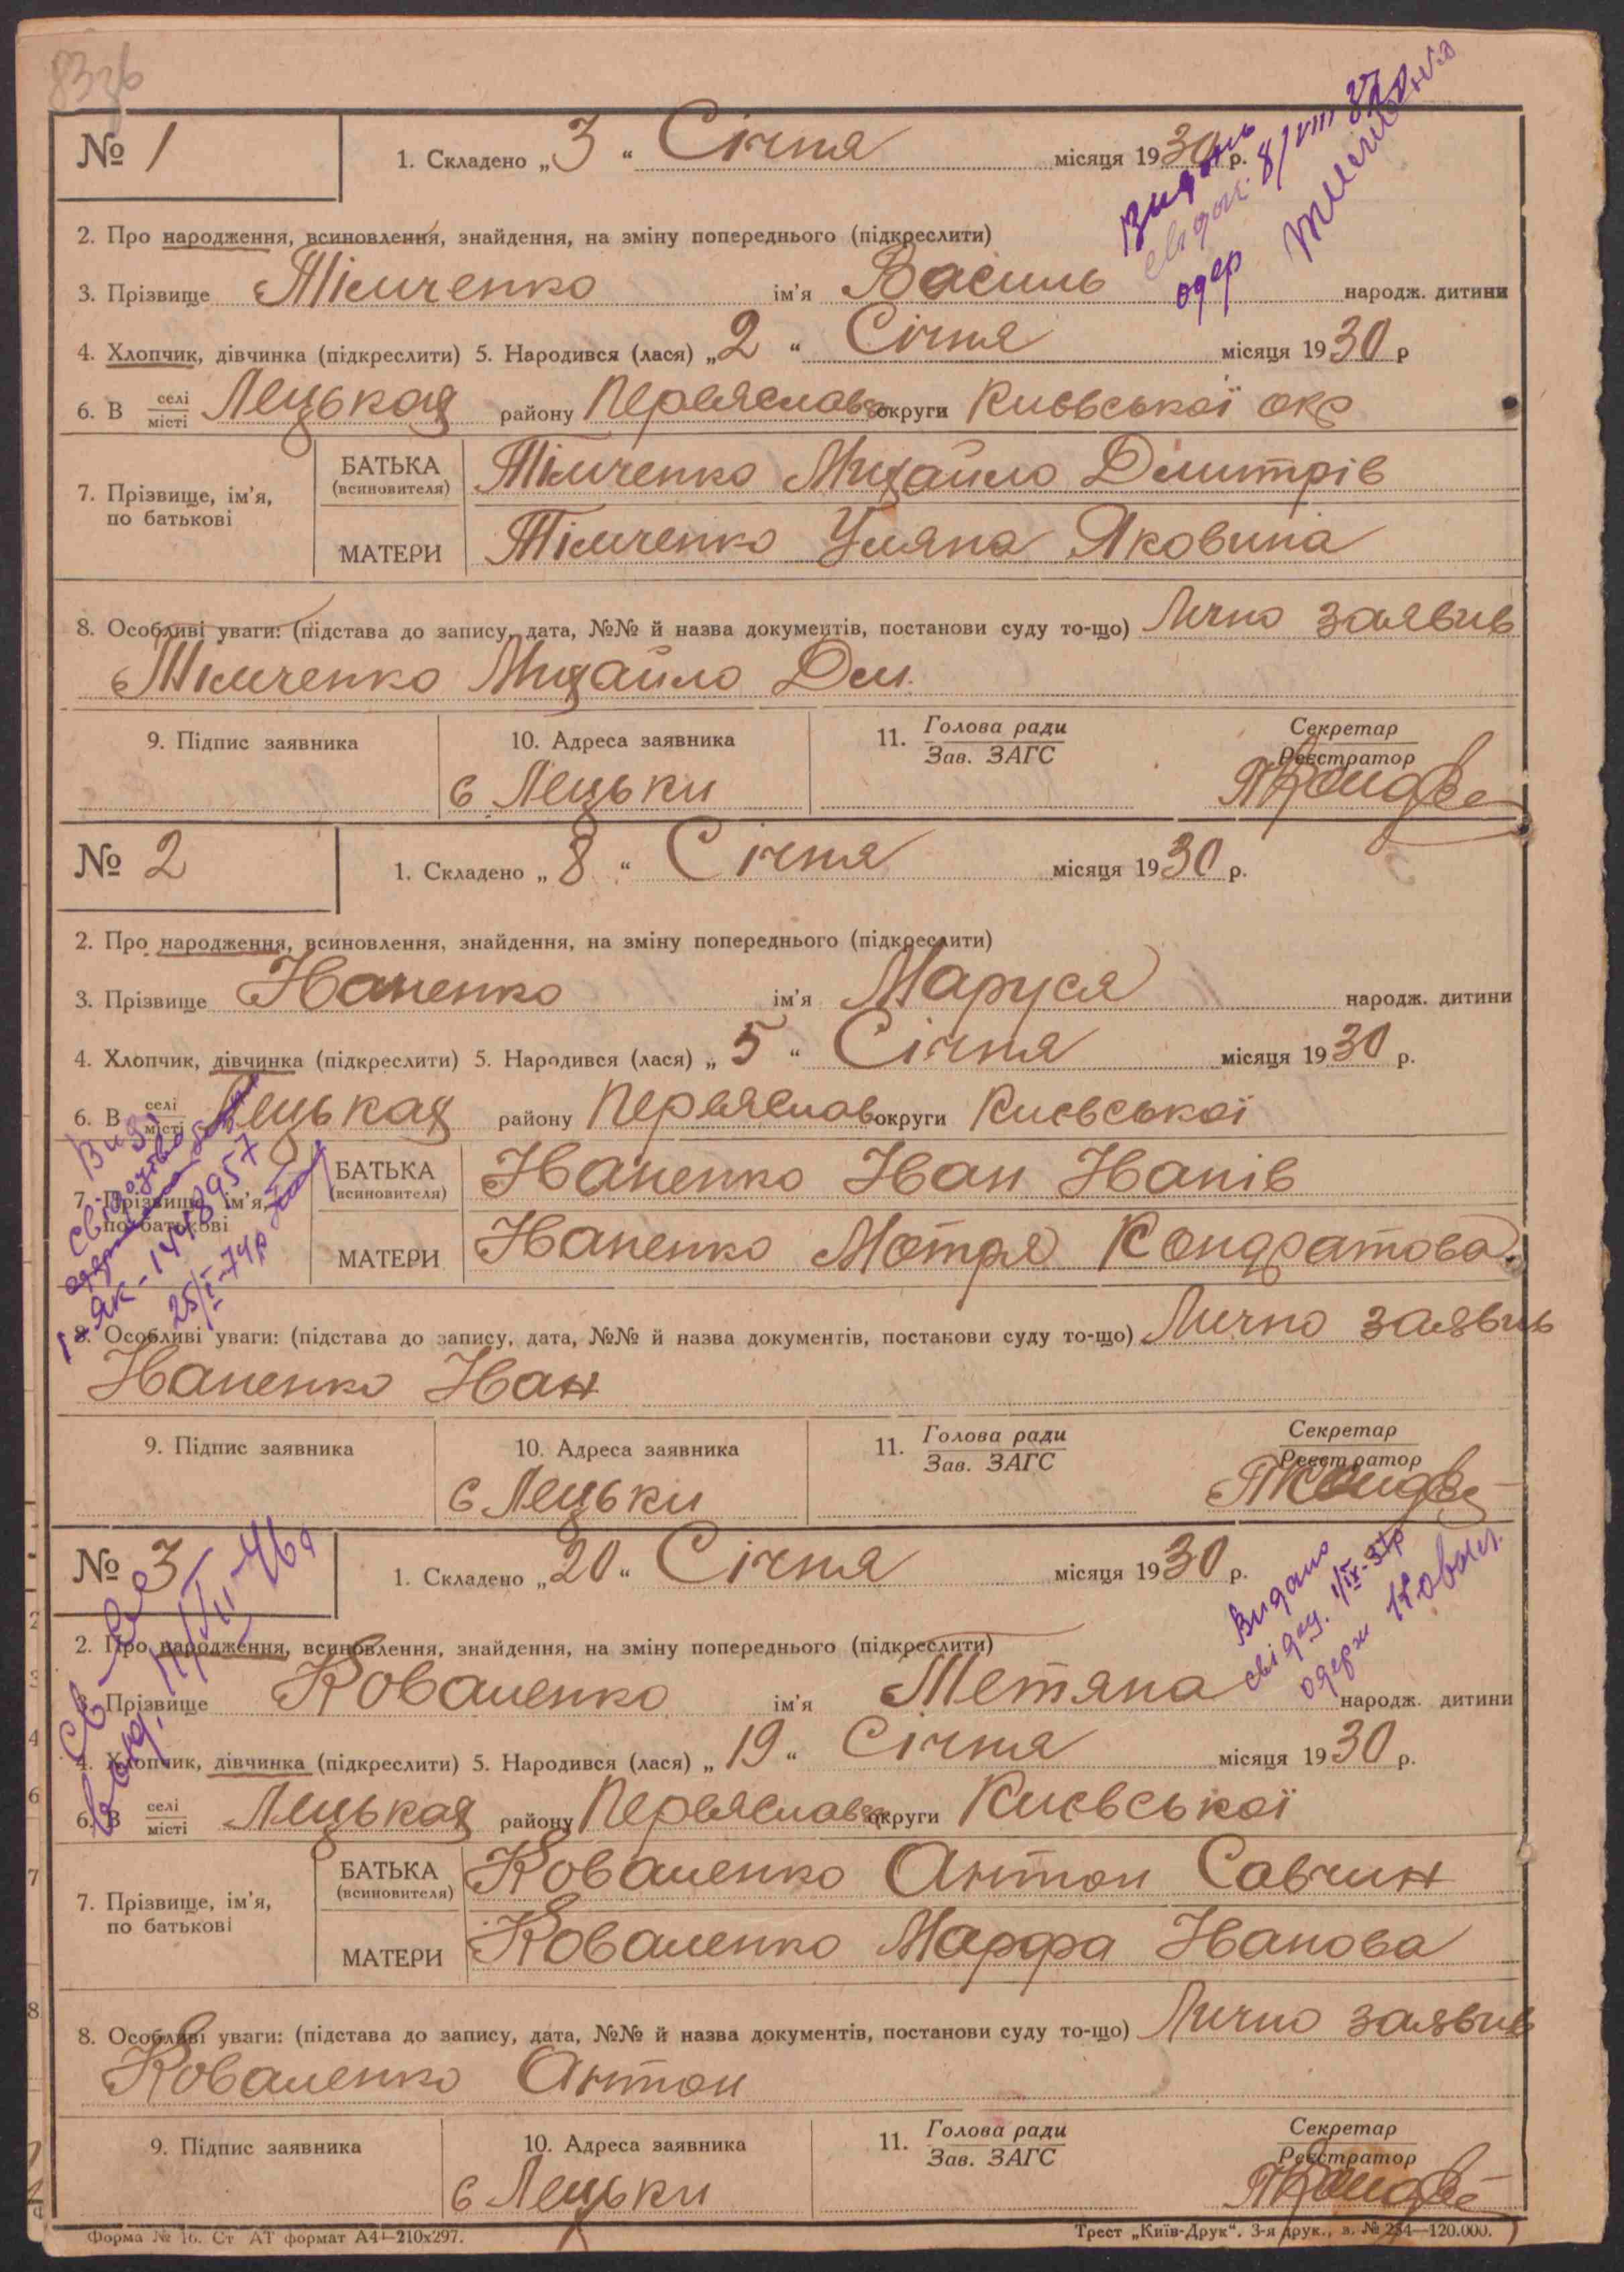 № 1
1. Складено „3“ Січня місяця 1930 р.
Видань
свідоц. 8/VIII 37
одер
2. Про народження, всиновлення, знайдення, на зміну попереднього (підкреслити)
3. Прізвище Тімченко ім'я Василь народж. дитини
4. Хлопчик, дівчинка (підкреслити) 5. Народився (лася) „2“ Січня місяця 1930 р
6. В селі/місті Лецьках району Переяслав округи Київської окр
7. Прізвище, ім'я, по батькові
БАТЬКА (всиновителя) Тімченко Михайло Дмитрів
МАТЕРИ Тімченко Уляна Яковина
8. Особливі уваги: (підстава до запису, дата, №№ й назва документів, постанови суду то-що) Лично заявив
Тімченко Михайло Дм.
9. Підпис заявника 10. Адреса заявника 11. Голова ради / Зав. ЗАГС Секретар / Реєстратор
с Лецьки
№ 2
1. Складено „8“ Січня місяця 1930 р.
2. Про народження, всиновлення, знайдення, на зміну попереднього (підкреслити)
3. Прізвище Іваненко ім'я Маруся народж. дитини
4. Хлопчик, дівчинка (підкреслити) 5. Народився (лася) „5“ Січня місяця 1930 р.
6. В селі/місті Лецьках району Переяслав округи Києвської
7. Прізвище, ім'я, по батькові
БАТЬКА (всиновителя) Іваненко Іван Іванів
МАТЕРИ Іваненко Мотря Кондратова
свідоцтво
25/I-74р
8. Особливі уваги: (підстава до запису, дата, №№ й назва документів, постанови суду то-що) Лично заявив
Іваненко Іван
9. Підпис заявника 10. Адреса заявника 11. Голова ради / Зав. ЗАГС Секретар / Реєстратор
с Лецьки
№ 3
1. Складено „20“ Січня місяця 1930 р.
Видано
свідоц. 1/IX-37р
одерж Ковал.
2. Про народження, всиновлення, знайдення, на зміну попереднього (підкреслити)
3. Прізвище Коваленко ім'я Тетяна народж. дитини
4. Хлопчик, дівчинка (підкреслити) 5. Народився (лася) „19“ Січня місяця 1930 р.
6. В селі/місті Лецьках району Переяслав округи Києвської
7. Прізвище, ім'я, по батькові
БАТЬКА (всиновителя) Коваленко Антон Савчин
МАТЕРИ Коваленко Марфа Іванова
8. Особливі уваги: (підстава до запису, дата, №№ й назва документів, постанови суду то-що) Лично заявив
Коваленко Антон
9. Підпис заявника 10. Адреса заявника 11. Голова ради / Зав. ЗАГС Секретар / Реєстратор
с Лецьки
Форма № 16. Ст АТ формат А4—210x297. Трест „Київ-Друк“. 3-я друк., з. № 234—120.000.